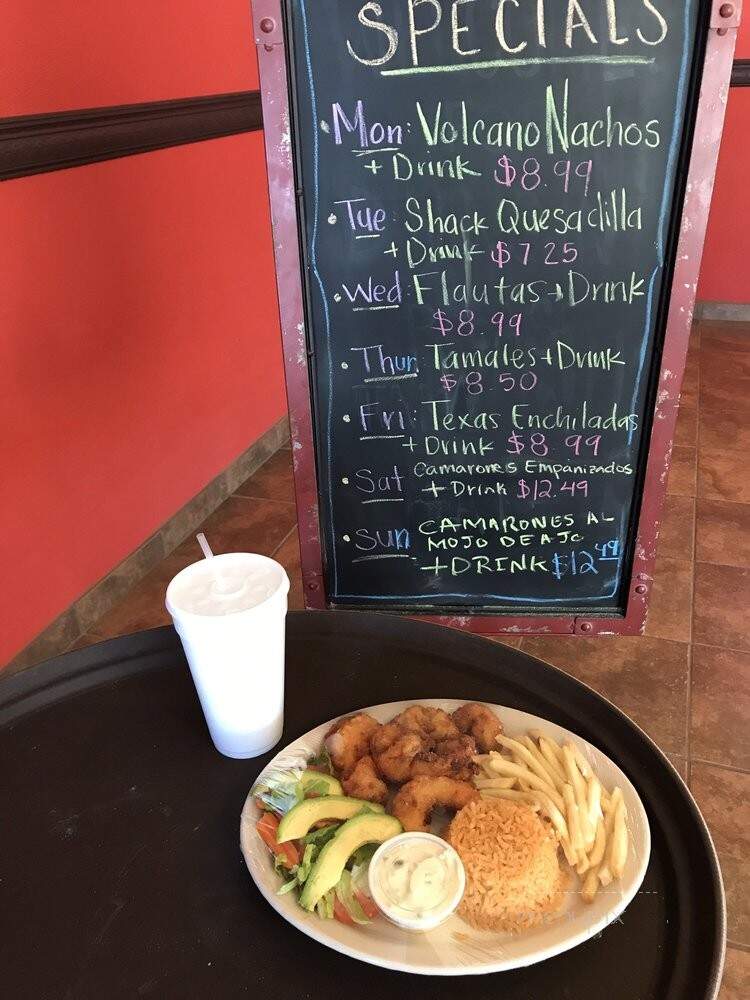 SPECIALS
• Mon: Volcano Nachos
+ Drink $8.99
• Tue: Shack Quesadilla
+ Drink $7.25
• Wed: Flautas + Drink
$8.99
• Thur: Tamales + Drink
$8.50
• Fri: Texas Enchiladas
+ Drink $8.99
• Sat Camarones Empanizados
+ Drink $12.49
• Sun CAMARONES AL
MOJO DE AJO
+ DRINK $12.49